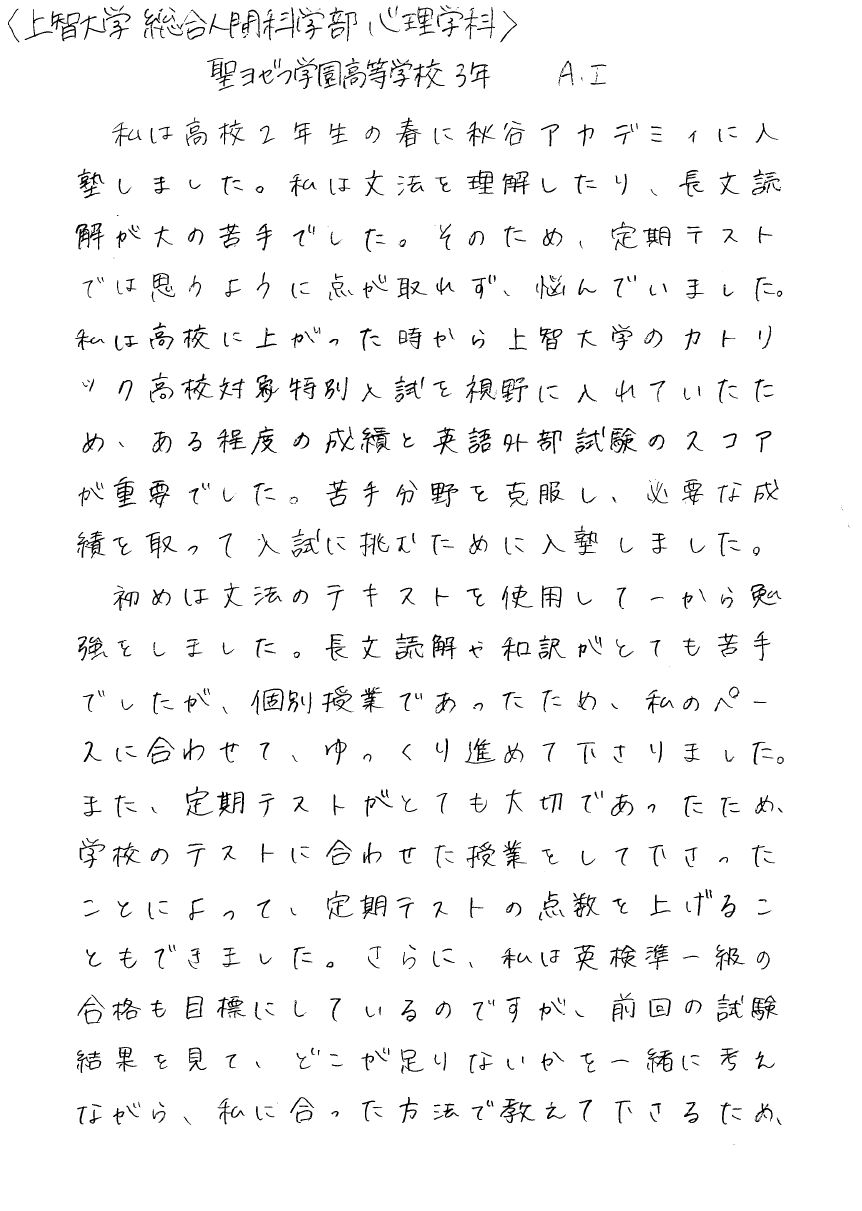 〈上智大学 総合人間科学部 心理学科〉
聖ヨゼフ学園高等学校 3年 A.I
私は高校2年生の春に秋谷アカデミィに入
塾しました。私は文法を理解したり、長文読
解が大の苦手でした。そのため、定期テスト
では思うように点が取れず、悩んでいました。
私は高校に上がった時から上智大学のカトリ
ック高校対象特別入試を視野に入れていたた
め、ある程度の成績と英語外部試験のスコア
が重要でした。苦手分野を克服し、必要な成
績を取って入試に挑むために入塾しました。
初めは文法のテキストを使用して一から勉
強をしました。長文読解や和訳がとても苦手
でしたが、個別授業であったため、私のペー
スに合わせて、ゆっくり進めて下さりました。
また、定期テストがとても大切であったため、
学校のテストに合わせた授業をして下さった
ことによって、定期テストの点数を上げるこ
ともできました。さらに、私は英検準一級の
合格も目標にしているのですが、前回の試験
結果を見て、どこが足りないかを一緒に考え
ながら、私に合った方法で教えて下さるため、